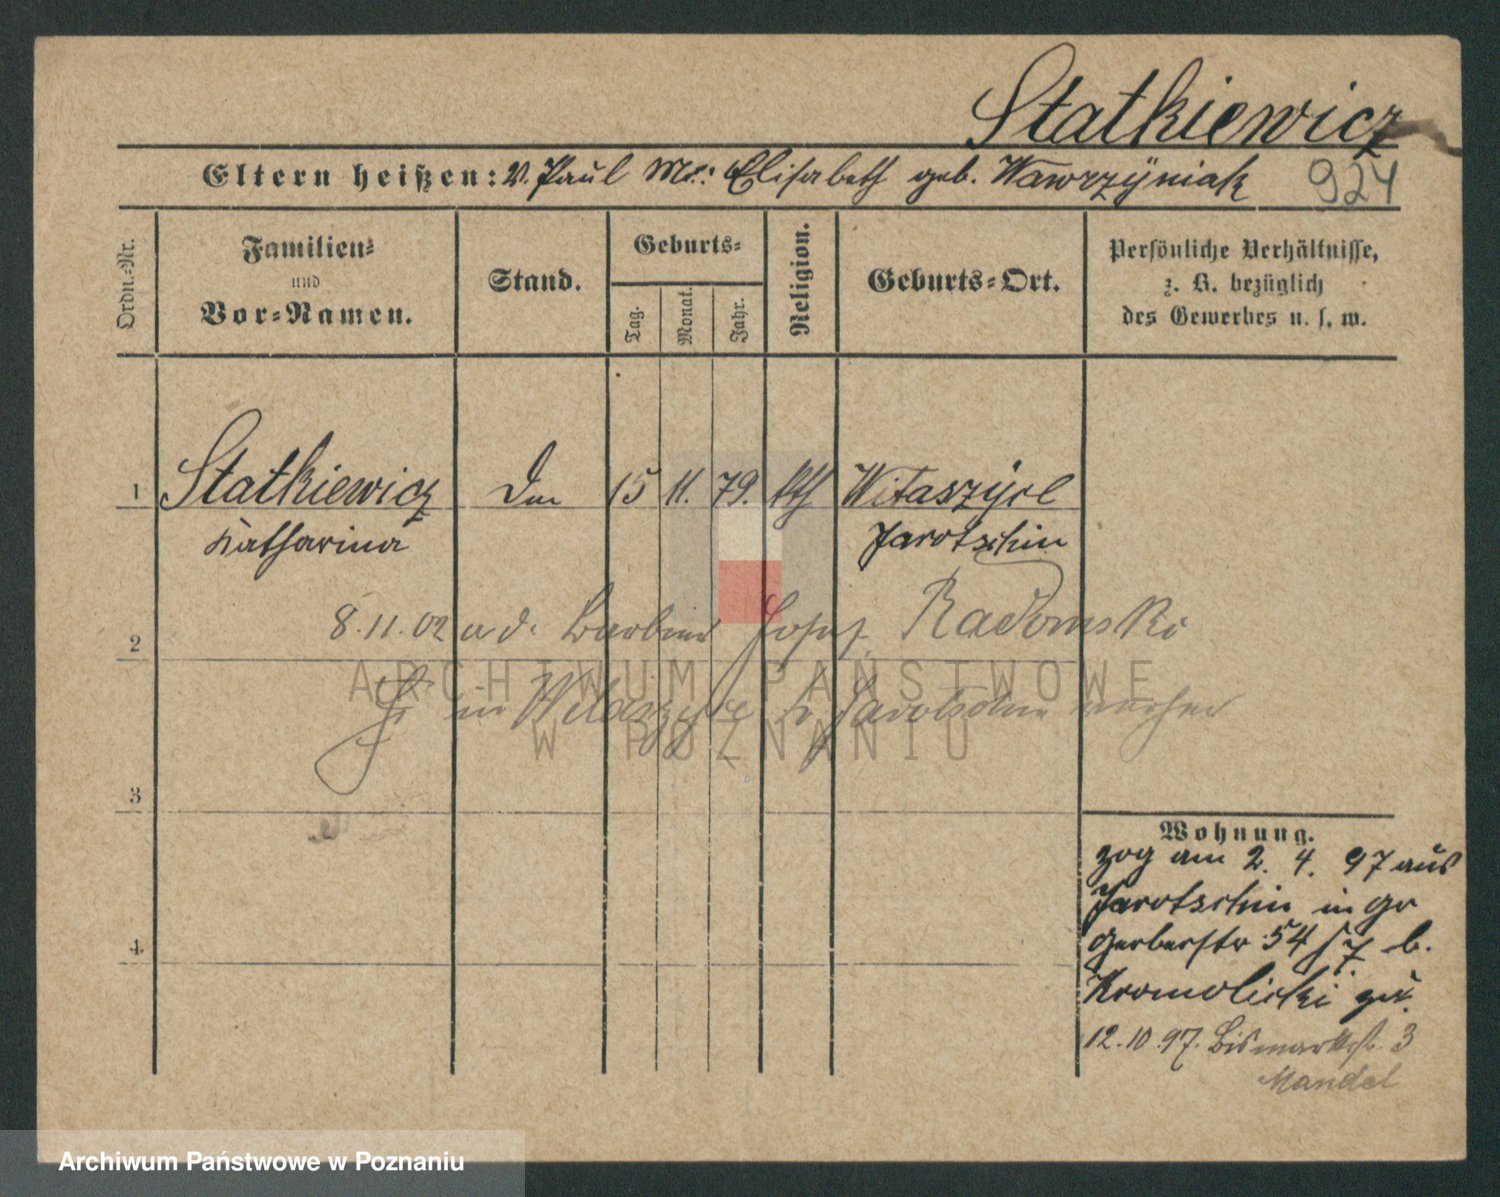 Statkiewicz
Eltern heißen: V. Paul M.: Elisabeth geb. Wawrzÿniak 924
Ordn.-Nr.
Familien-
und
Vor-Namen.
Stand.
Geburts-
Tag.
Monat.
Jahr.
Religion.
Geburts-Ort.
Persönliche Verhältnisse,
z. B. bezüglich
des Gewerbes u. s. w.
1 Statkiewicz 15 11. 79. kth
Katharina Jarotschin
2 8.11.02 a d. Barbier Josef Radomski
in b Jarotschin
ARCHIWUM PAŃSTWOWE
W POZNANIU
3
4
Wohnung.
zog am 2. 4. 97 aus
Jarotschin in
Gerberstr 54 b.
Kromolicki
12.10.97. Bismarckstr. 3
Mandel
Archiwum Państwowe w Poznaniu